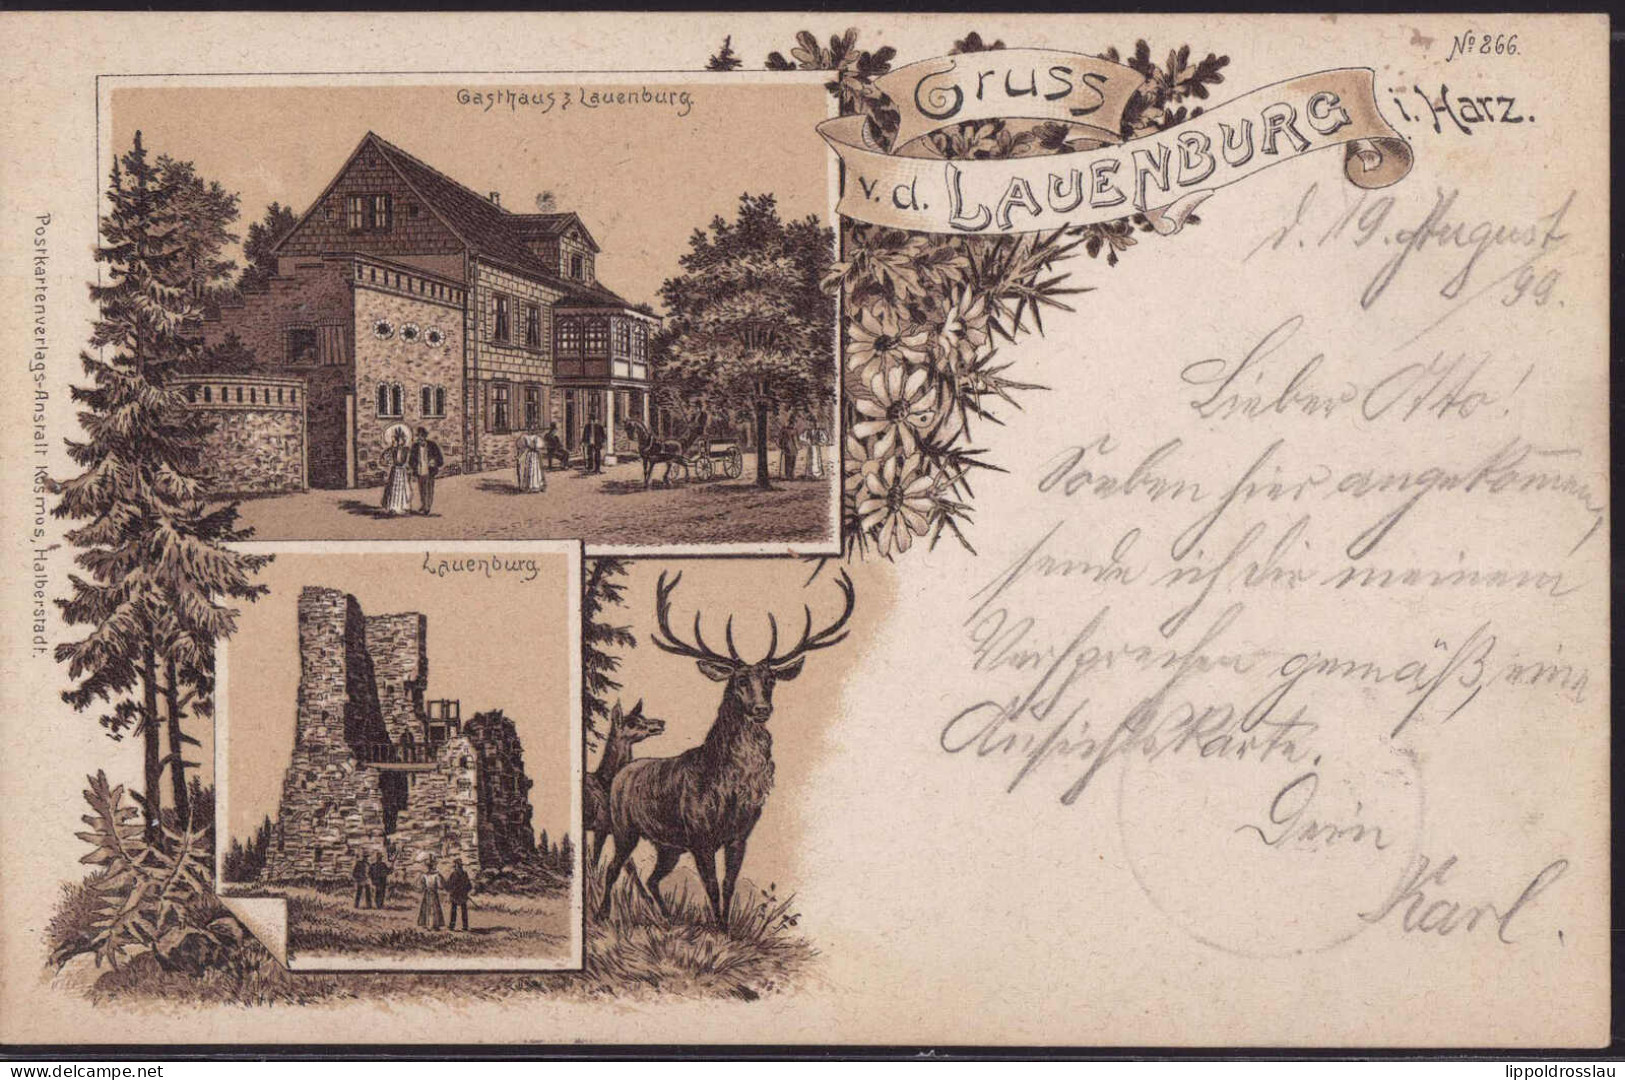 Nº 266.
Gruss
v. d. LAUENBURG i. Harz.
Gasthaus z. Lauenburg.
Lauenburg.
Postkartenverlags-Anstalt Kosmos, Halberstadt.
d. 19. August
99.
Lieber Otto!
Soeben hier angekom̅en,
sende ich Dir meinem
Versprechen gemäß, eine
Ansichtskarte.
Dein
Karl.
delcampe.net
lippoldrosslau